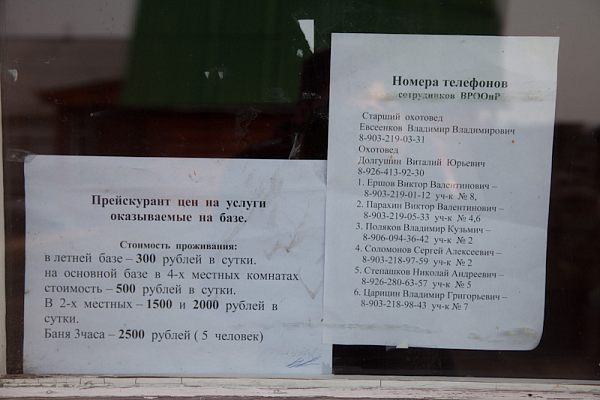 Прейскурант цен на услуги
оказываемые на базе.
Стоимость проживания:
в летней базе – 300 рублей в сутки.
на основной базе в 4-х местных комнатах
стоимость – 500 рублей в сутки.
В 2-х местных – 1500 и 2000 рублей в
сутки.
Баня 3часа – 2500 рублей ( 5 человек)
Номера телефонов
сотрудников ВРООиР
Старший охотовед
Евсеенков Владимир Владимирович
8-903-219-03-31
Охотовед
Долгушин Виталий Юрьевич
8-926-413-92-30
1. Ершов Виктор Валентинович –
8-903-219-01-12 уч-к № 8,
2. Парахин Виктор Валентинович –
8-903-219-05-33 уч-к № 4,6
3. Поляков Владимир Кузьмич –
8-906-094-36-42 уч-к № 2
4. Соломонов Сергей Алексеевич –
8-903-218-97-59 уч-к № 2
5. Степашков Николай Андреевич –
8-926-280-63-57 уч-к № 5
6. Царицин Владимир Григорьевич –
8-903-218-98-43 уч-к № 7